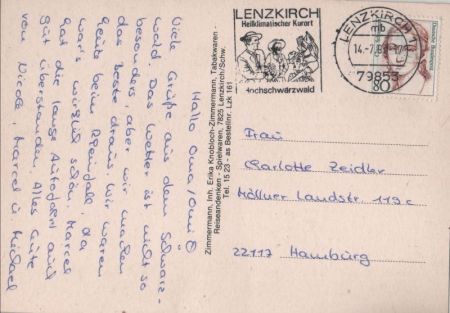 Hallo Oma/Omi
Viele Grüße aus dem Schwarz-
wald. Das Wetter ist nicht so
besonders aber wir machen
das beste draus. Wir waren
heute beim Rheinfall, da
war's wirklich schön. Marcel
hat die lange Autofahrt auch
gut überstanden. Alles Gute
von Nicole, Marcel u. Michael
Zimmermann, Inh. Erika Knobloch-Zimmermann, Tabakwaren -
Reiseandenken - Spielwaren, 7825 Lenzkirch/Schw.
Tel. 15 23 - as Bestellnr. Lzk 161
LENZKIRCH
Heilklimatischer Kurort
Hochschwarzwald
LENZKIRCH 1
mb
79853
80
Frau
Charlotte Zeidler
Möllner Landstr. 119c
22117 Hamburg